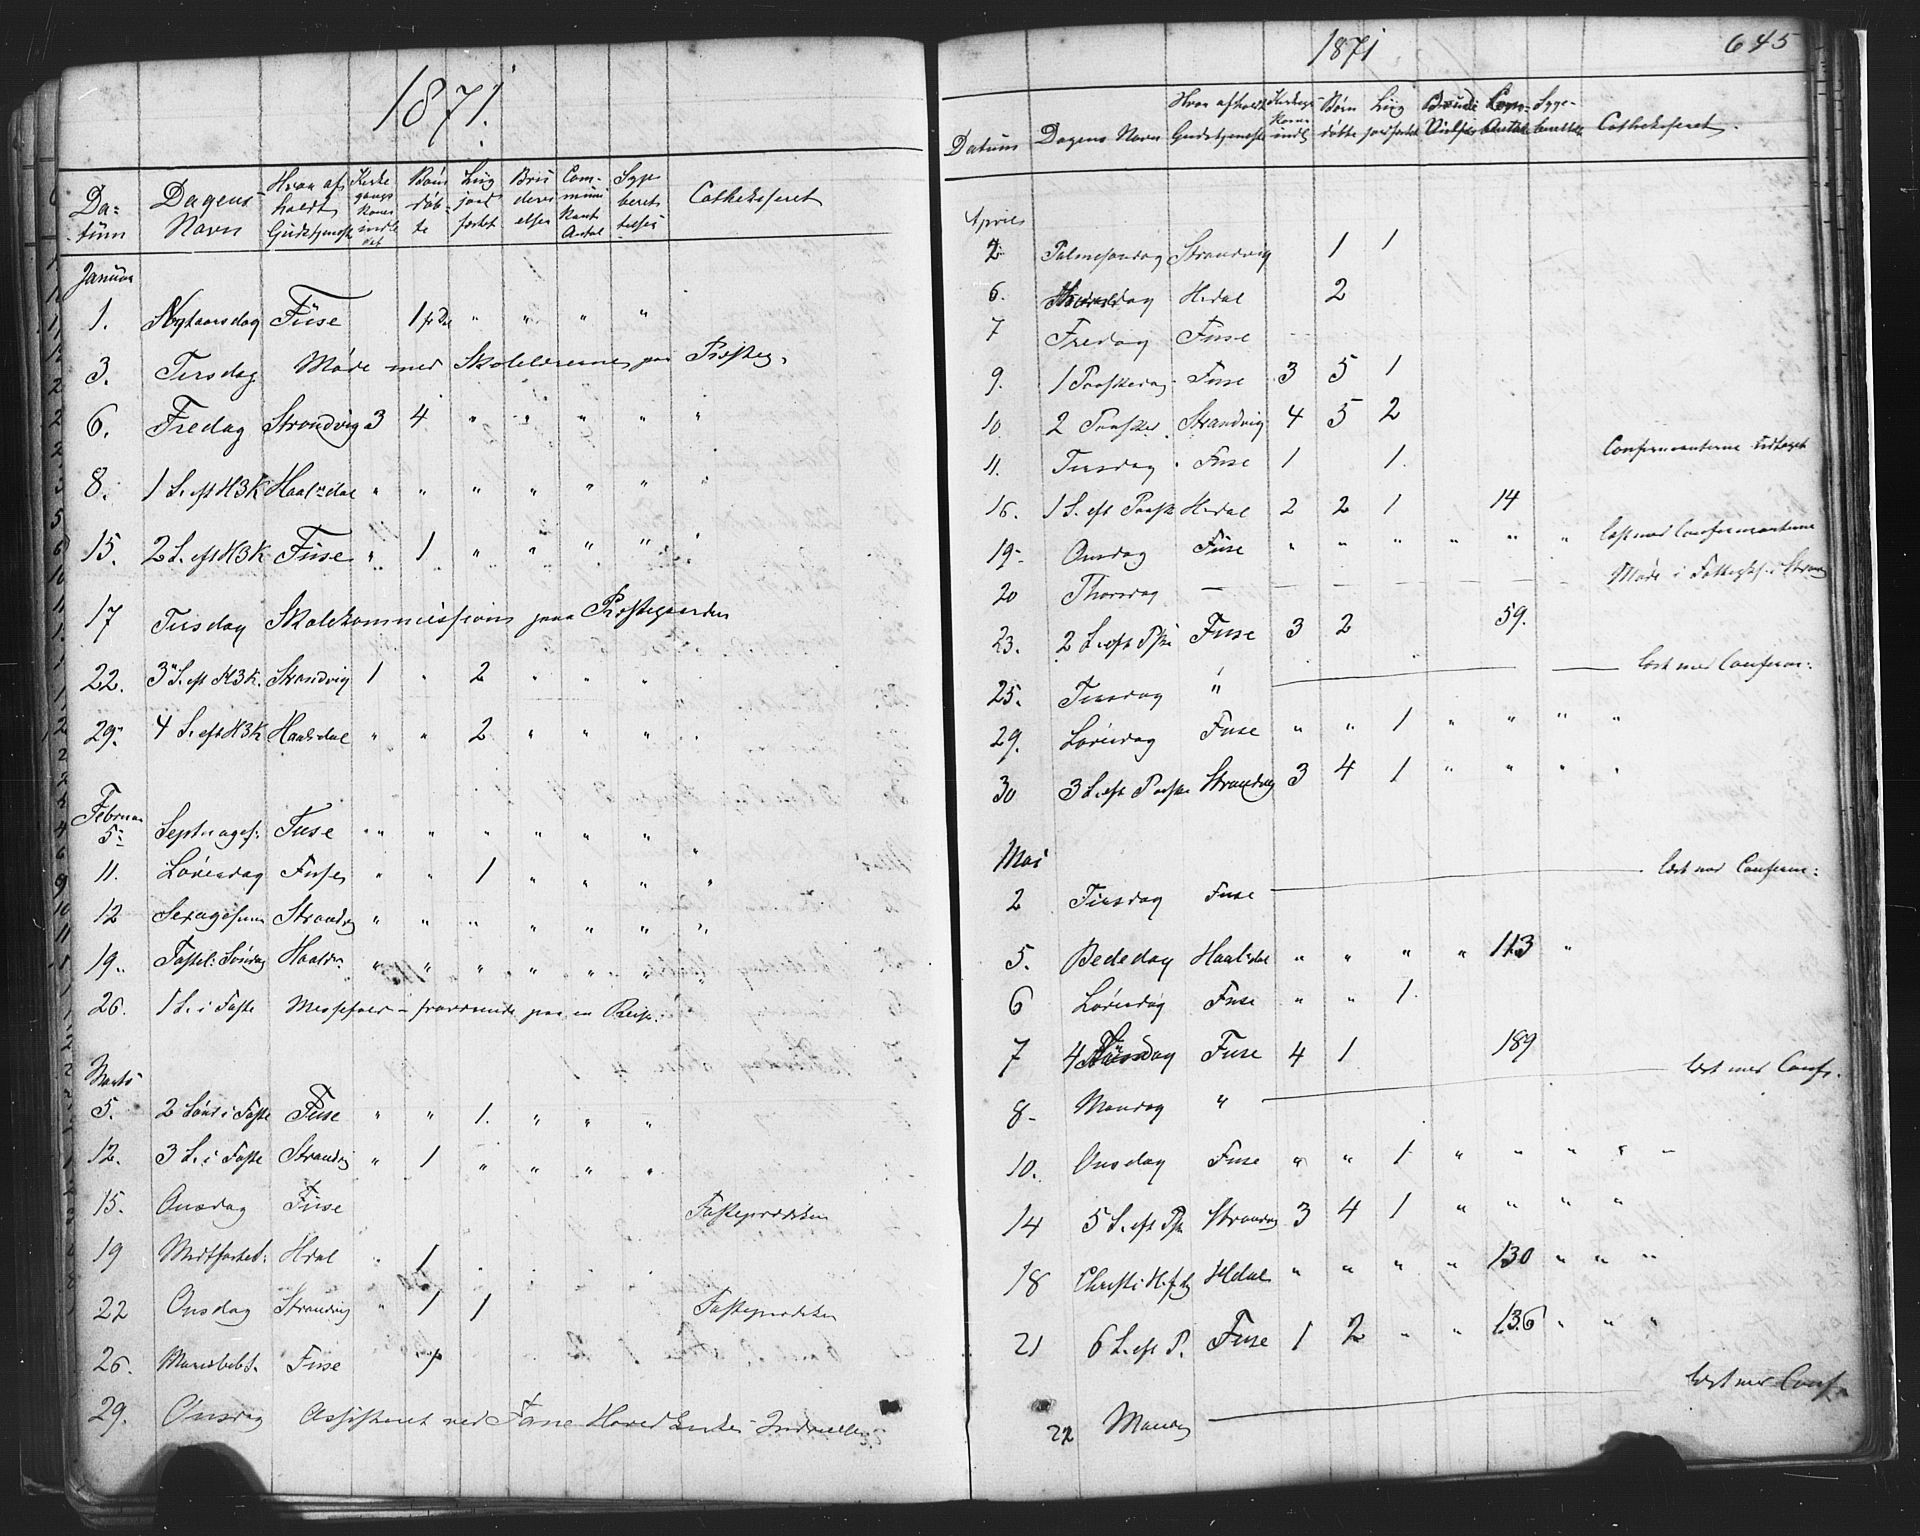 1871.
Datum Dagens Navn Hvor afholdt Gudstjeneste Kirkegangskoner indledet Børn døbte Liig jordfæstet Brudevielser Communikant Antal Sygeberettelser Catheketseret
Januar
1. Nytaarsdag Fuse 1 " " " "
3. Tirsdag Møde med Skolelærerne paa Præsteg.
6. Fredag Strandvig 3 4 " " " " "
8. 1 S. eft H3K Haalsdal " " " " " " "
15. 2 S. eft H3K Fuse " 1 " " " " "
17 Tirsdag Skolekommission paa Præstegaarden
22. 3 S. eft H3K. Strandvig 1 " 2 " " "
29. 4 S. eft H3K Haalsdal " " 2 " " " "
Februar
5 Septuages: Fuse " " " " " " "
11. Løverdag Fuse " " 1 " " " "
12 Sexagesima Strandvig " " " " " " "
19. Fastel: Søndag Haalsd. " " " " " " "
26. 1 S. i Faste Messefald - fraværende paa en Reise.
Marts
5. 2 Sønd i Faste Fuse " " 1. " " "
12. 3 S. i Faste Strandvig " 1 " " " "
15. Onsdag Fuse Fasteprædiken
19 Midfaste: Hdal " 1 " " " "
22 Onsdag Strandvig " 1 1 Fasteprædiken
26. Mariæbebd. Fuse "
29. Onsdag Assisteret ved Fane Hoved Kirkes Indvielse
1871 645
Datum Dagens Navn Hvor afholdt Gudstjeneste Kirkegangskoner indl Børn døbte Liig jordfæstet Brude Vielser Com. Antal Sygeberettelser Catheketseret.
April
2 Palmesøndag Strandvig 1 1
6. dag Hdal 2
7 Fredag Fuse
9. 1 Paaskedag Fuse 3 5 1
10. 2 Paaskes. Strandvig 4 5 2
11. Tirsdag Fuse 1 1. Confirmanterne udtaget
16. 1 S. eft Paask Hdal 2 2 1 14
19 Onsdag Fuse " " " " " " læst med Confirmanterne
20 Thorsdag Møde i Fattigks. i Strandv
23. 2 S. eft Pske Fuse 3 2 59.
25. Tirsdag " læst med Confirm:
29. Løverdag Fuse " " 1 " " " "
30 3 S. eft Paaske Strandvig 3 4 1 " " " "
Mai
2 Tirsdag Fuse læst med Confirm:
5. Bededag Haalsdal " " " " 113 "
6 Løverdag Fuse " " 1.
7 4 Søndag Fuse 4 1 189
8 Mandag " læst med Confr.
10. Onsdag Fuse " " 1 " " " " "
14 5 S. eft Psk Strandvig 3 4 1 " " " "
18 Christi H.f.dg Hdal " " " " 130 " " "
21 6 S. eft P. Fuse 1 2 " " 136 " " "
22 Mandag læst med Conf.